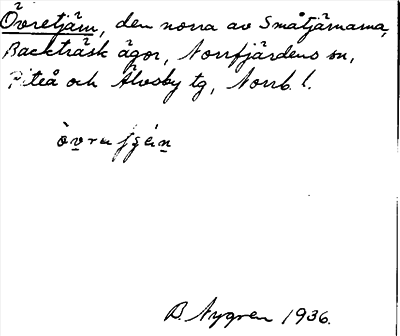 Övretjärn, den norra av Småtjärnarna,
Backträsk ägor, Norrfjärdens sn,
Piteå och Älvsby tg, Norrb. l.
B. Nygren 1936.